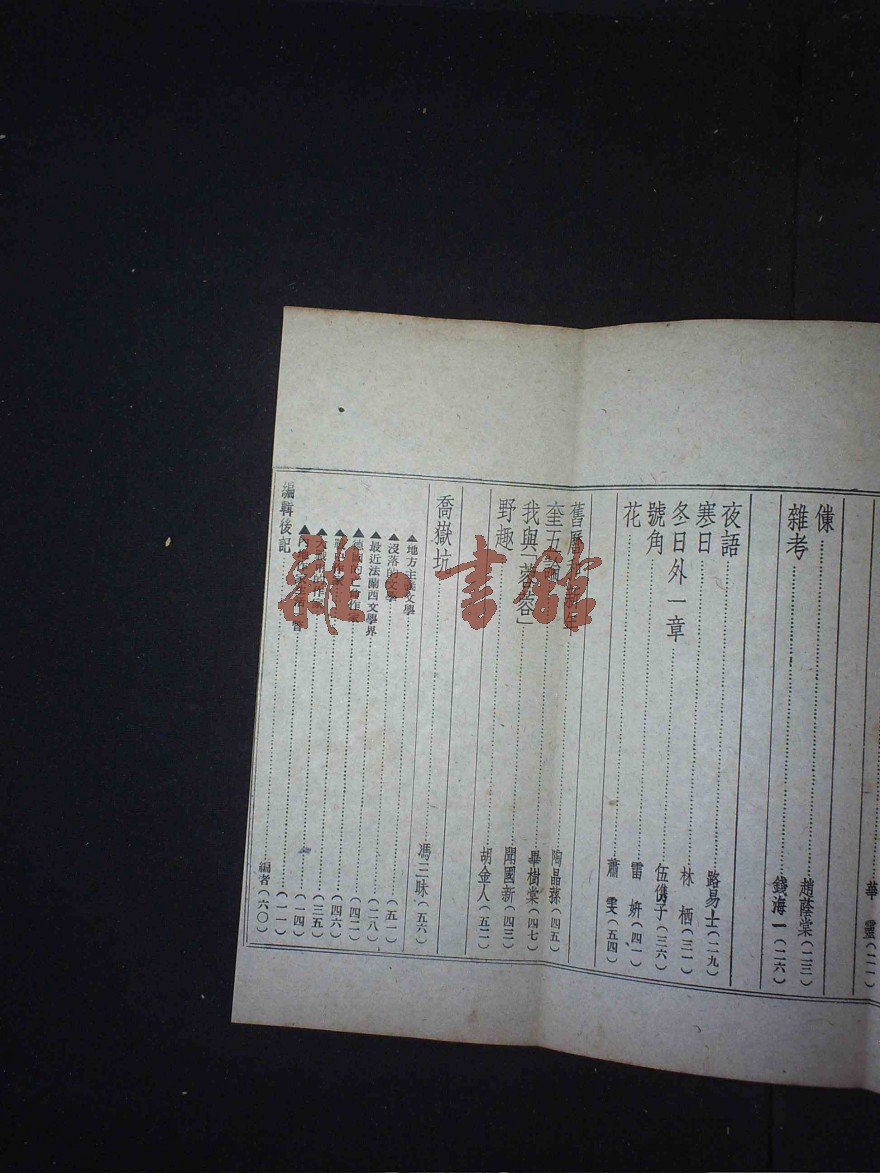 華靈(二二)
傣………趙蔭棠(二三)
雜考………錢海一(二六)
夜語………路易士(二九)
寒日………林栖(三一)
冬日外一章………伍儁子(三六)
號角………雷妍(四一)
花………蕭雯(五四)
舊曆 新年………陶晶孫(四五)
奎 論………畢樹棠(四七)
我與「蓉蓉」………聞國新(四三)
野趣………胡金人(五二)
喬嶽坑………馮三昧(五六)
▲地方主義文學………(五一)
▲沒落的文學………(二八)
▲最近法蘭西文學界………(四二)
▲德國的 作家………(四六)
▲ 作家………(三五)
▲ 的作家………(一四)
▲ ………(一一)
編輯後記………編者(六〇)
雜·書館